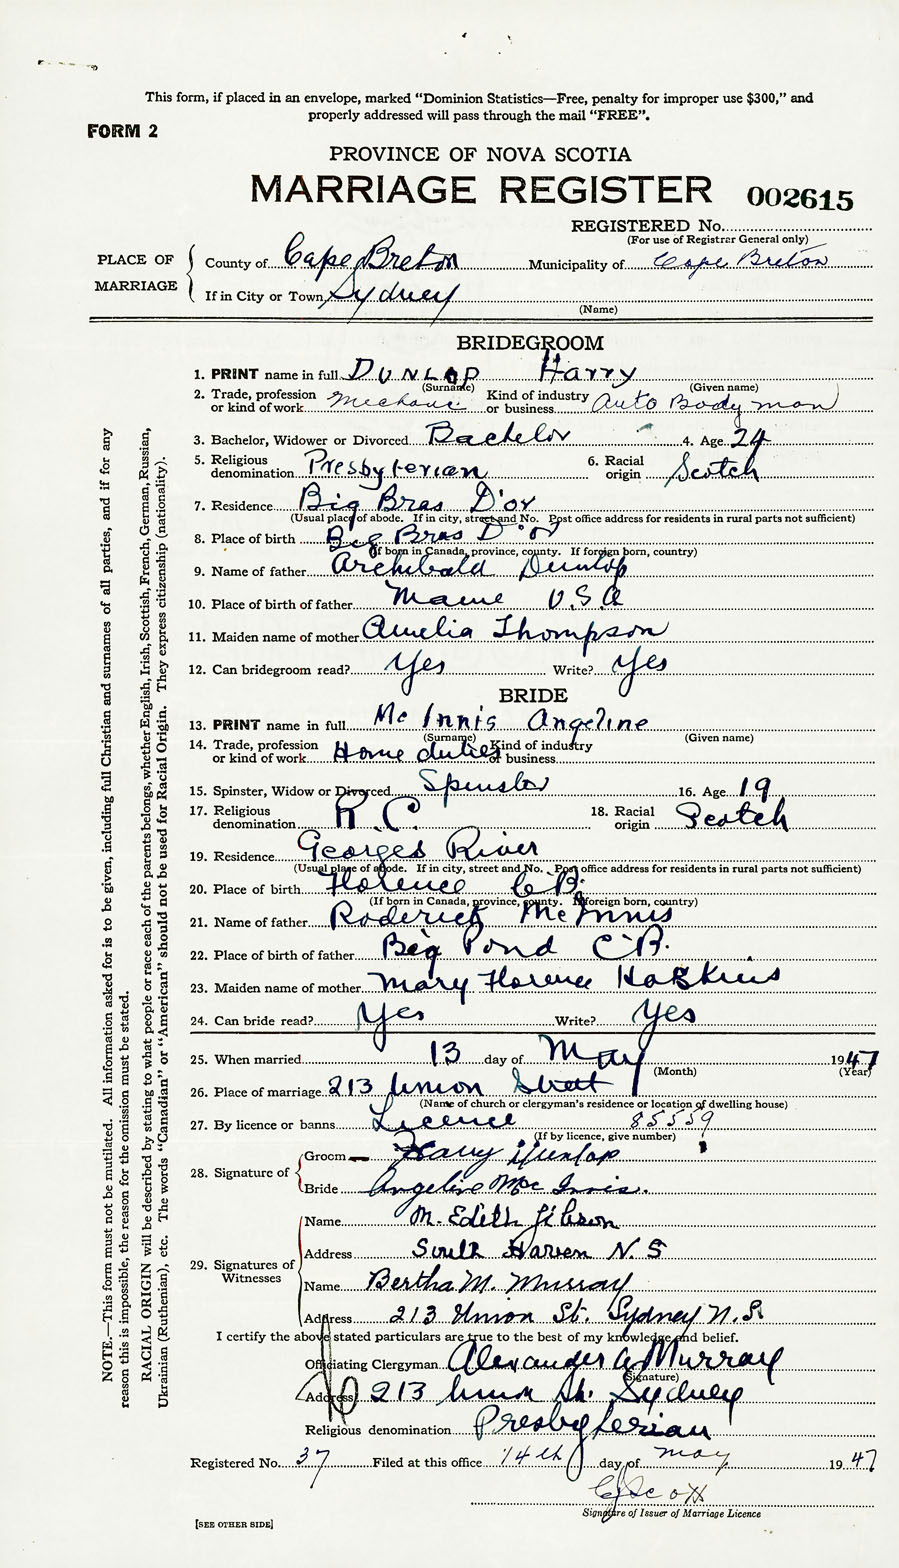 This form, if placed in an envelope, marked “Dominion Statistics—Free, penalty for improper use $300,” and
properly addressed will pass through the mail “FREE”.
FORM 2
PROVINCE OF NOVA SCOTIA
MARRIAGE REGISTER 002615
REGISTERED No.
(For use of Registrar General only)
PLACE OF MARRIAGE
County of Cape Breton Municipality of Cape Breton
If in City or Town Sydney
(Name)
BRIDEGROOM
1. PRINT name in full DUNLOP Harry
(Surname) (Given name)
2. Trade, profession or kind of work Mechanic Kind of industry or business Auto Body man
3. Bachelor, Widower or Divorced Bachelor 4. Age 24
5. Religious denomination Presbyterian 6. Racial origin Scotch
7. Residence Big Bras D'or
(Usual place of abode. If in city, street and No. Post office address for residents in rural parts not sufficient)
8. Place of birth Big Bras D'or
(If born in Canada, province, county. If foreign born, country)
9. Name of father Archibald Dunlop
10. Place of birth of father Maine U.S.A
11. Maiden name of mother Amelia Thompson
12. Can bridegroom read? Yes Write? Yes
BRIDE
13. PRINT name in full Mc Innis Angeline
(Surname) (Given name)
14. Trade, profession or kind of work Home duties Kind of industry or business
15. Spinster, Widow or Divorced Spinster 16. Age 19
17. Religious denomination R.C. 18. Racial origin Scotch
19. Residence Georges River
(Usual place of abode. If in city, street and No. Post office address for residents in rural parts not sufficient)
20. Place of birth Florence C.B.
(If born in Canada, province, county. If foreign born, country)
21. Name of father Roderick McInnis
22. Place of birth of father Big Pond C.B.
23. Maiden name of mother Mary Florence Hopkins
24. Can bride read? Yes Write? Yes
25. When married 13 day of May 1947
(Month) (Year)
26. Place of marriage 213 Union Street
(Name of church or clergyman's residence or location of dwelling house)
27. By licence or banns Licence 85559
(If by licence, give number)
28. Signature of
Groom Harry Dunlop
Bride Angeline Mc Innis.
29. Signatures of Witnesses
Name M. Edith Gibson
Address South Haven N.S
Name Bertha M. Murray
Address 213 Union St. Sydney N.S.
I certify the above stated particulars are true to the best of my knowledge and belief.
Officiating Clergyman Alexander A Murray
(Signature)
Address 213 Union St. Sydney
Religious denomination Presbyterian
Registered No. 37 Filed at this office 14th day of May 1947
Scott
Signature of Issuer of Marriage Licence
[SEE OTHER SIDE]
NOTE.—This form must not be mutilated. All information asked for is to be given, including full Christian and surnames of all parties, and if for any
reason this is impossible, the reason for the omission must be stated.
RACIAL ORIGIN will be described by stating to what people or race each of the parents belongs, whether English, Irish, Scottish, French, German, Russian,
Ukrainian (Ruthenian), etc. The words “Canadian” or “American” should not be used for Racial Origin. They express citizenship (nationality).